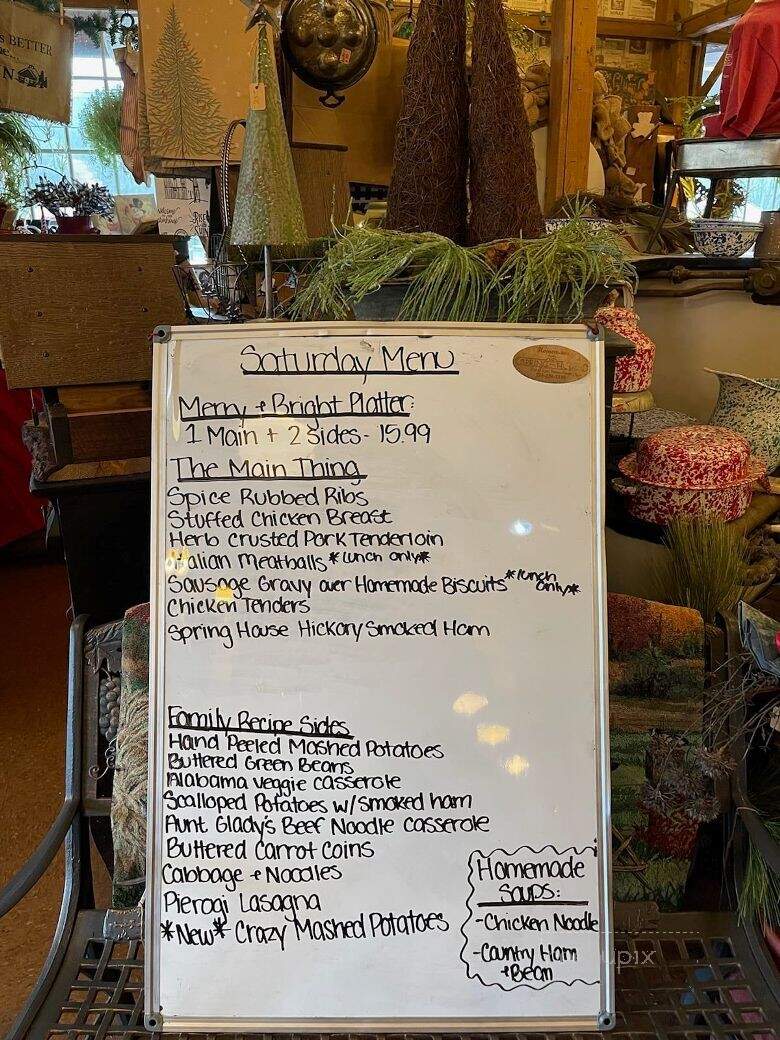 BETTER
Saturday Menu
Merry & Bright Platter:
1 Main + 2 sides - 15.99
The Main Thing
Spice Rubbed Ribs
Stuffed Chicken Breast
Herb Crusted Pork Tenderloin
Italian Meatballs *lunch only*
Sausage Gravy over Homemade Biscuits *lunch only*
Chicken Tenders
Spring House Hickory Smoked Ham
Family Recipe Sides
Hand Peeled Mashed Potatoes
Buttered Green Beans
Alabama Veggie Casserole
Scalloped Potatoes w/ smoked ham
Aunt Glady's Beef Noodle Casserole
Buttered Carrot Coins
Cabbage & Noodles
Pierogi Lasagna
*New* Crazy Mashed Potatoes
Homemade
Soups:
-Chicken Noodle
-Country Ham
& Bean